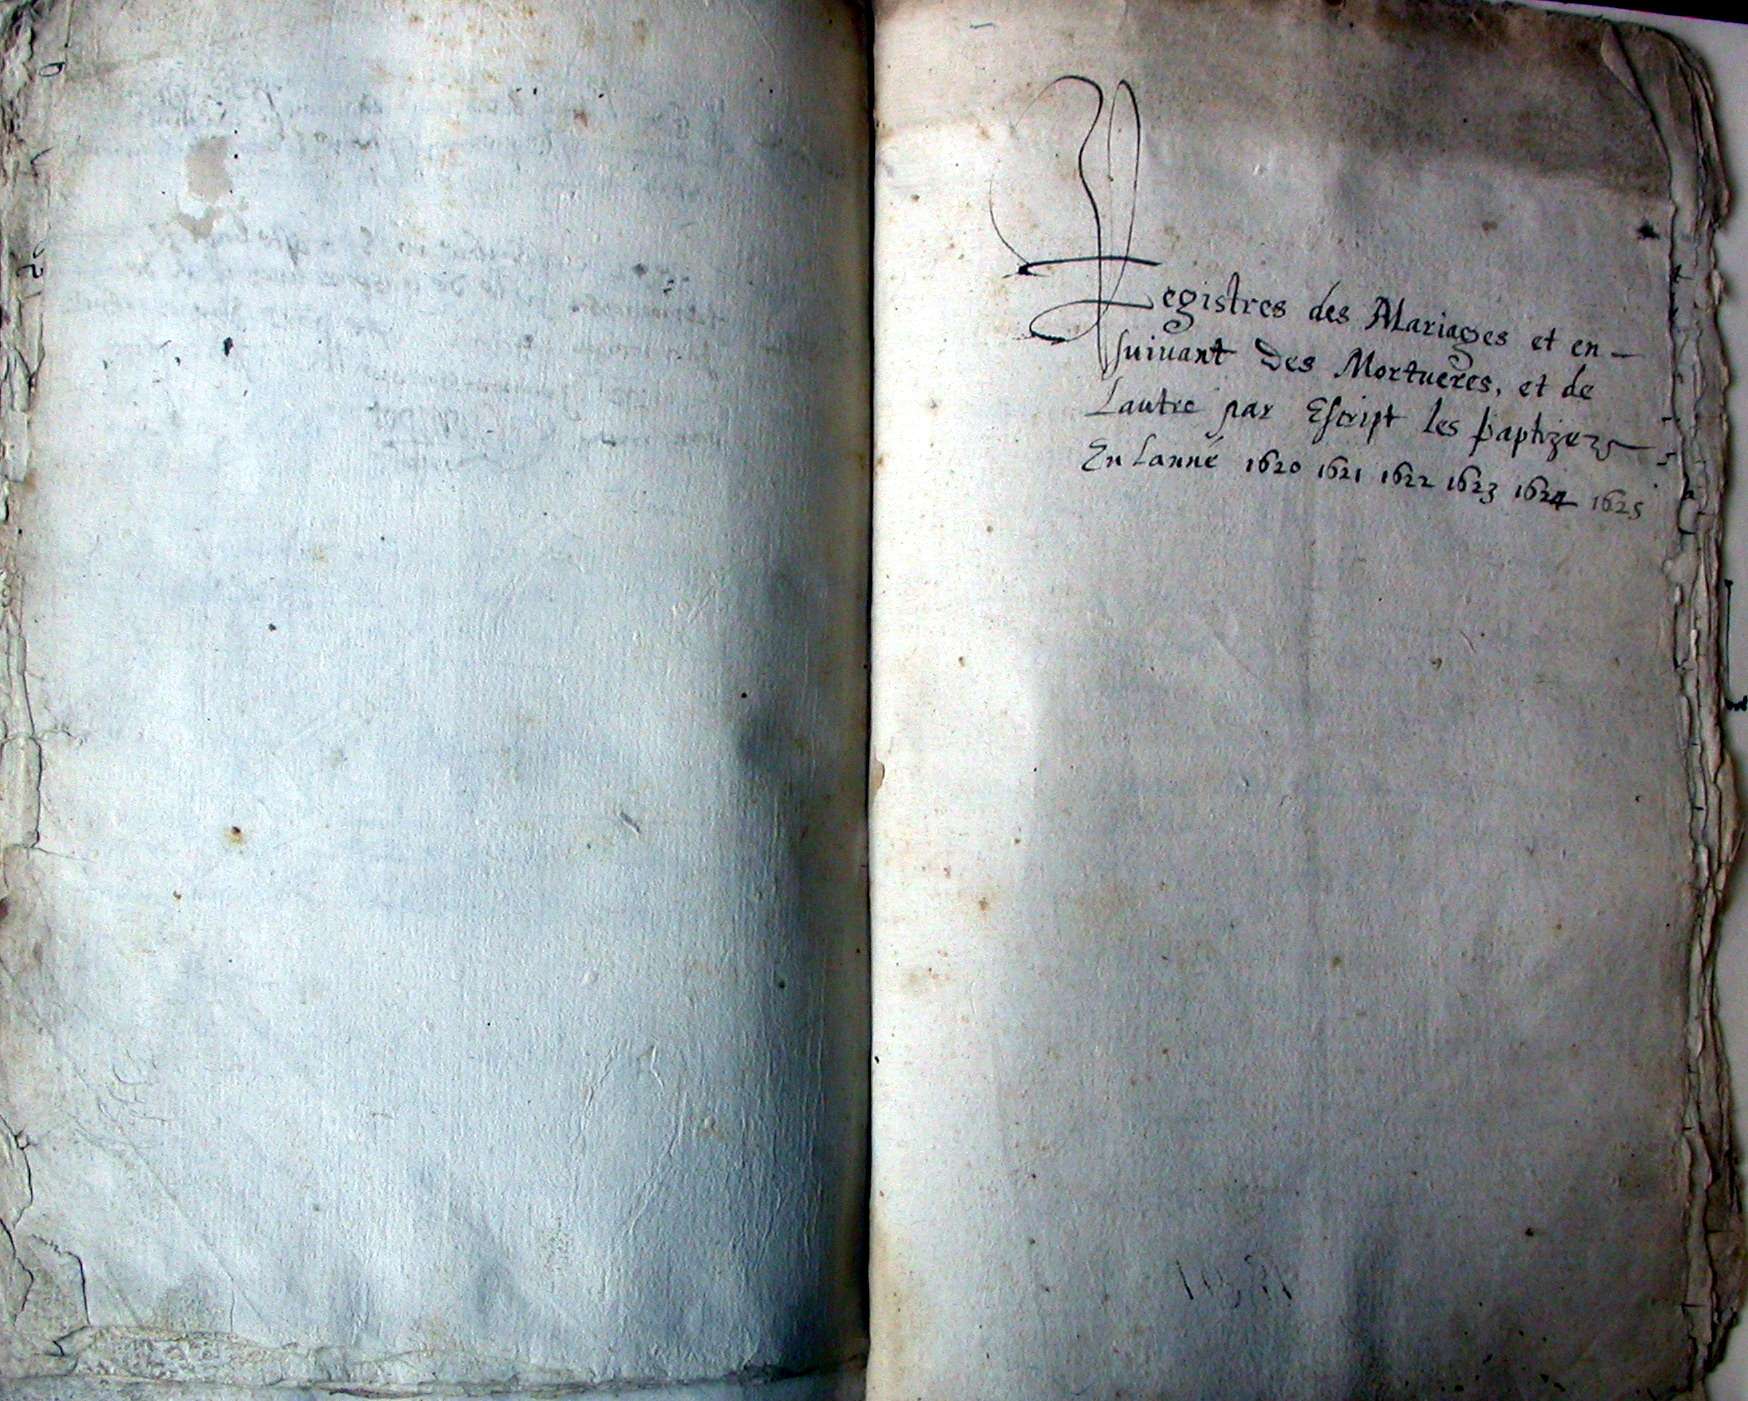 Registres des Mariages et en-
suiuant des Mortueres, et de
Lautre par Escript les baptizez
En Lanné 1620 1621 1622 1623 1624 1625